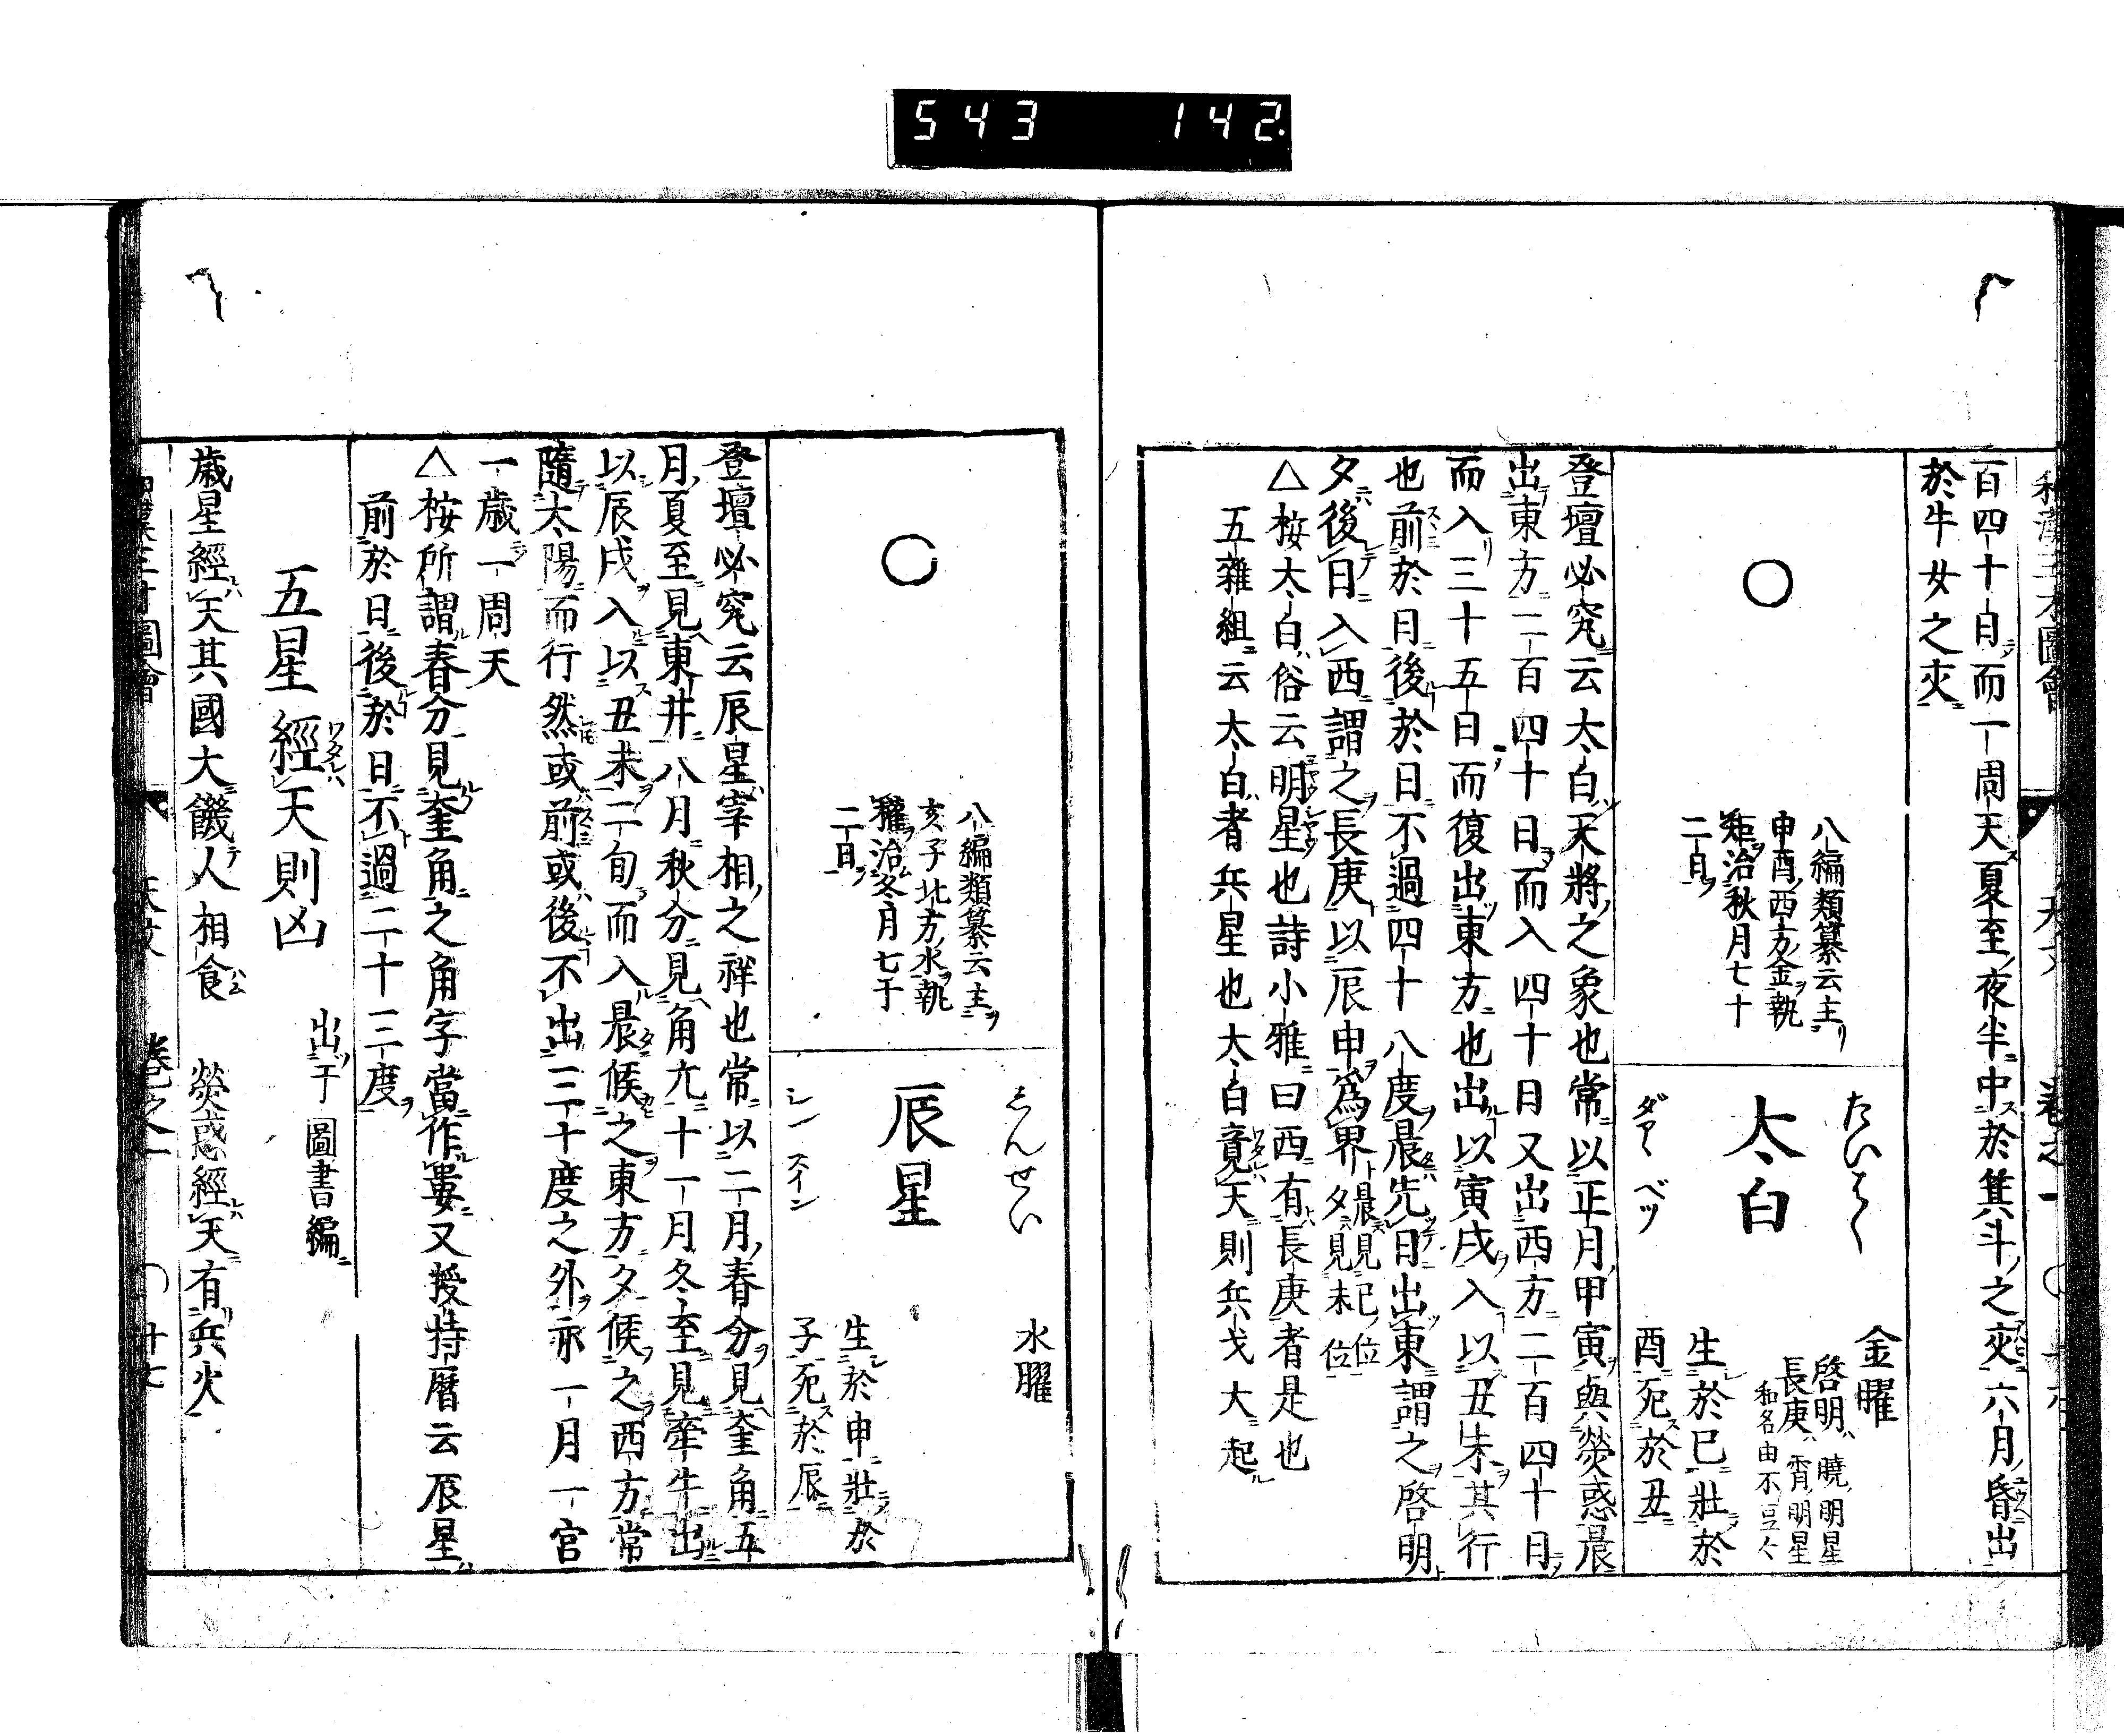 543 142
和漢三才圖會 天文 卷之一
百四十日而一周天夏至夜半中於箕斗之夾六月昏出
於牛女之夾
八編類纂云主
申酉西方金執
矩治秋月七十
二日
たいはく
太白
ダアヽ ベッ
金曜
啓明 曉明星
長庚 霄明星
和名由不豆々
生於巳壯於
酉死於丑
登壇必究云太白天將之象也常以正月甲寅與熒惑晨
出東方二百四十日而入四十日又出西方二百四十日
而入三十五日而復出東方也出以寅戌入以丑未其行
也前於日後於日不過四十八度晨先日出東謂之啓明
夕後日入西謂之長庚以辰申爲界 晨見巳位 夕見未位
△桉太白俗云明星也詩小雅曰西有長庚者是也
五雜組云太白者兵星也太白竟天則兵戈大起
八編類纂云主
亥子北方水執
權治冬月七十
二日
しんせい
辰星
シン スイン
水曜
生於申壯於
子死於辰
登壇必究云辰星宰相之祥也常以二月春分見奎角五
月夏至見東井八月秋分見角亢十一月冬至見牽牛出
以辰戌入以丑未二旬而入晨候之東方夕候之西方常
隨太陽而行然或前或後不出三十度之外亦一月一宮
一歲一周天
△桉所謂春分見奎角之角字當作婁又授持曆云辰星
前於日後於日不過二十三度
五星經天則凶 出于圖書編
歲星經天其國大饑人相食 熒惑經天有兵火
圖會 天文 卷之一 〇 廿七